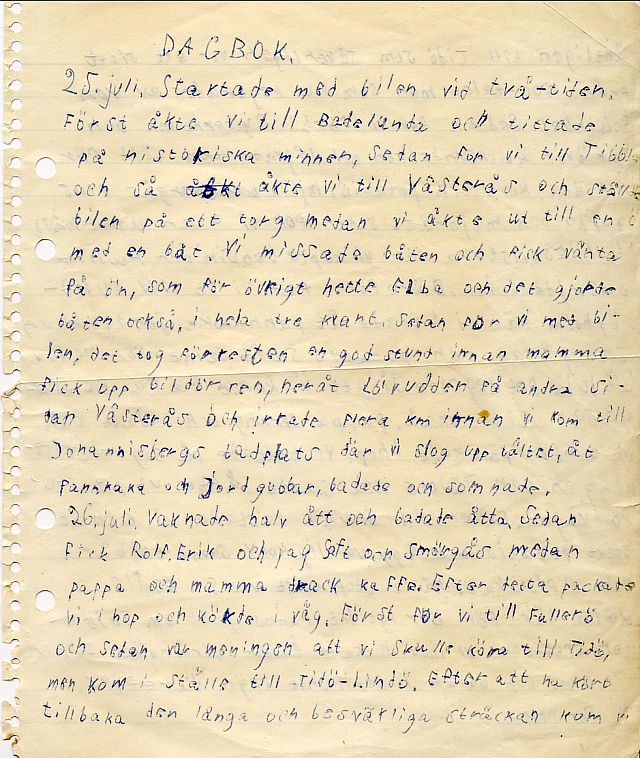 DAGBOK.
25 juli. Startade med bilen vid två-tiden.
Först åkte vi till Badelunda och tittade
på historiska minnen, sedan for vi till Tibble
och så åkte vi till Västerås och ställde
bilen på ett torg medan vi åkte ut till en ö
med en båt. Vi missade båten och fick vänta
på ön, som för övrigt hette Elba och det gjorde
båten också, i hela tre kvart. Sedan for vi med bi-
len, det tog förresten en god stund innan mamma
fick upp bildörren, neråt Lövudden på andra si-
dan Västerås och irrade flera km innan vi kom till
Johannisbergs badplats där vi slog upp tältet, åt
pannkaka och jordgubbar, badade och somnade.
26 juli. Vaknade halv åtta och badade åtta. Sedan
fick Rolf, Erik och jag saft och smörgås medan
pappa och mamma drack kaffe. Efter detta packade
vi ihop och körde iväg. Först for vi till Fullerö
och sedan var meningen att vi skulle köra till Tidö,
men kom i ställe till Tidö-Lindö. Efter att ha kört
tillbaka den långa och besvärliga sträckan kom vi